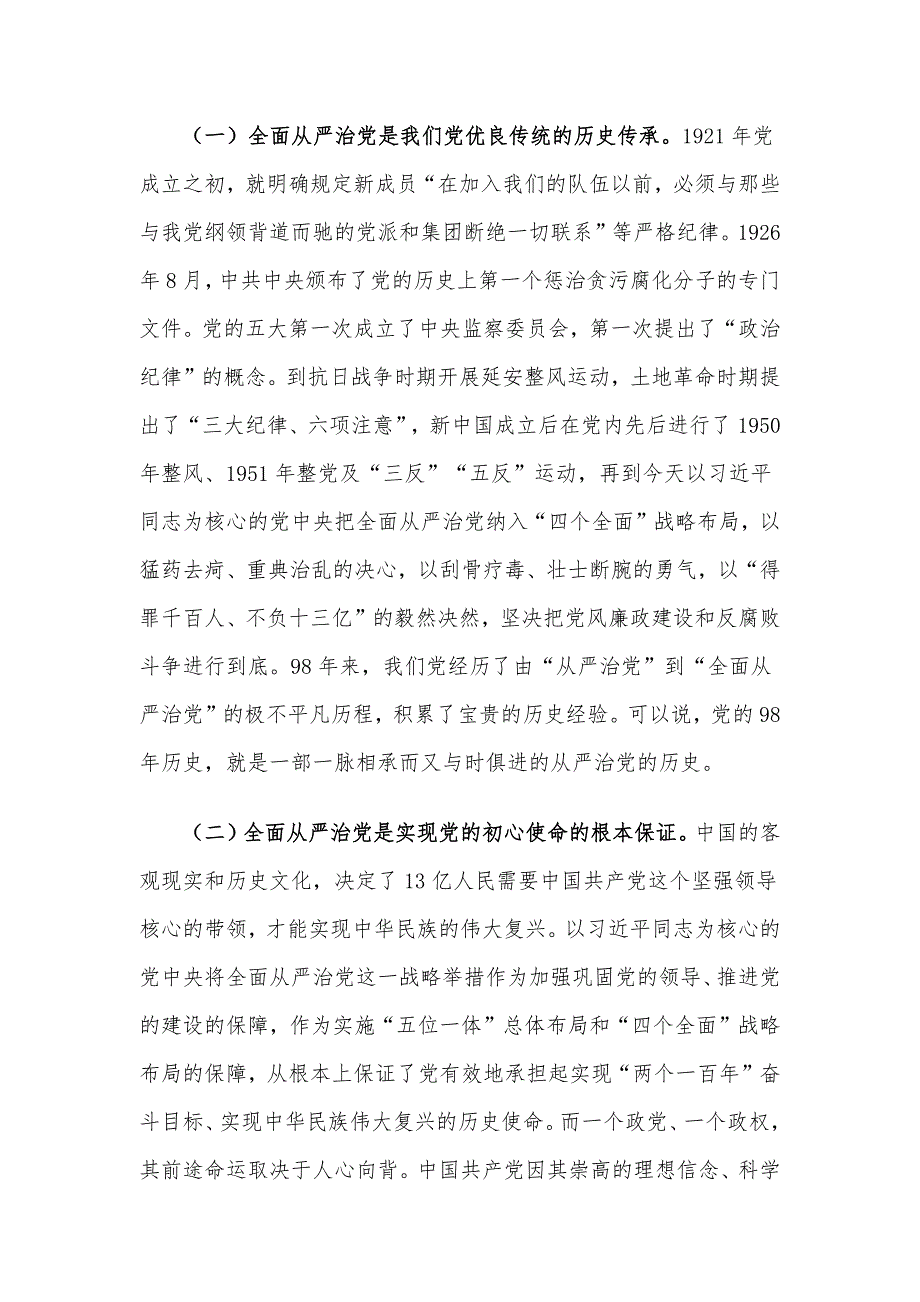 （一）全面从严治党是我们党优良传统的历史传承。1921 年党
成立之初，就明确规定新成员“在加入我们的队伍以前，必须与那些
与我党纲领背道而驰的党派和集团断绝一切联系”等严格纪律。1926
年 8 月，中共中央颁布了党的历史上第一个惩治贪污腐化分子的专门
文件。党的五大第一次成立了中央监察委员会，第一次提出了“政治
纪律”的概念。到抗日战争时期开展延安整风运动，土地革命时期提
出了“三大纪律、六项注意”，新中国成立后在党内先后进行了 1950
年整风、1951 年整党及“三反”“五反”运动，再到今天以习近平
同志为核心的党中央把全面从严治党纳入“四个全面”战略布局，以
猛药去疴、重典治乱的决心，以刮骨疗毒、壮士断腕的勇气，以“得
罪千百人、不负十三亿”的毅然决然，坚决把党风廉政建设和反腐败
斗争进行到底。98 年来，我们党经历了由“从严治党”到“全面从
严治党”的极不平凡历程，积累了宝贵的历史经验。可以说，党的 98
年历史，就是一部一脉相承而又与时俱进的从严治党的历史。
（二）全面从严治党是实现党的初心使命的根本保证。中国的客
观现实和历史文化，决定了 13 亿人民需要中国共产党这个坚强领导
核心的带领，才能实现中华民族的伟大复兴。以习近平同志为核心的
党中央将全面从严治党这一战略举措作为加强巩固党的领导、推进党
的建设的保障，作为实施“五位一体”总体布局和“四个全面”战略
布局的保障，从根本上保证了党有效地承担起实现“两个一百年”奋
斗目标、实现中华民族伟大复兴的历史使命。而一个政党、一个政权，
其前途命运取决于人心向背。中国共产党因其崇高的理想信念、科学